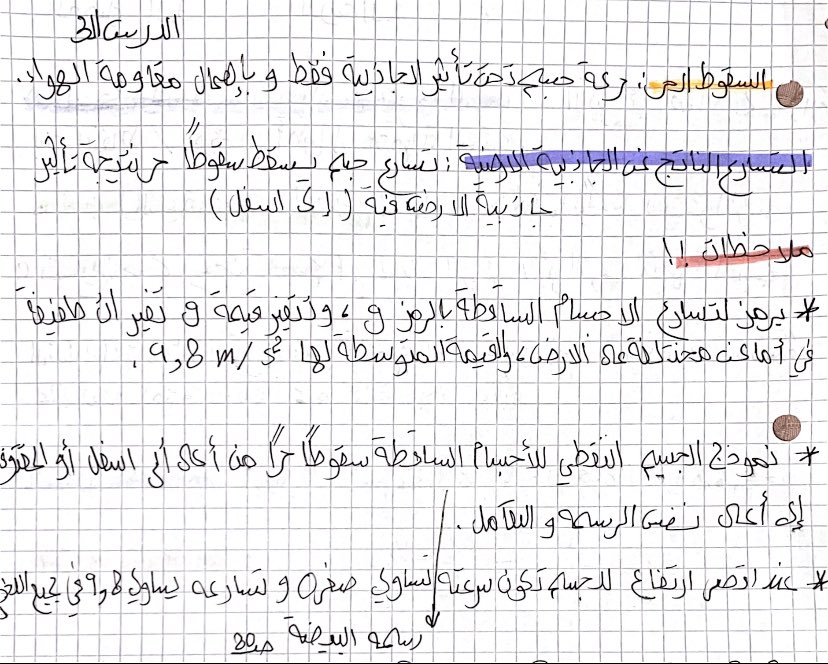 الدرس الـ3
السقوط الحر: حركة جسم تحت تأثير الجاذبية فقط و بإهمال مقاومة الهواء.
التسارع الناتج عن الجاذبية الارضية: تسارع جسم يسقط سقوطاً حر نتيجة تأثير
جاذبية الارض فية (إلى اسفل)
ملاحظات !!
* يرمز لتسارع الاجسام الساقطة بالرمز g، وتتغير قيمة g تغيرات طفيفة
في أماكن مختلفة على الارض، والقيمة المتوسطة لها 9,8 m/s².
* نموذج الجسيم النقطي للأجسام الساقطة سقوطاً حراً من أعلى ألى اسفل أو المقذوفة
إلى أعلى نفس الرسمة و التعامل.
* عند اقصى ارتفاع للجسم تكون سرعته تساوي صفر 0 و تسارعه يساوي 9,8 في جميع
رسمة البيضة